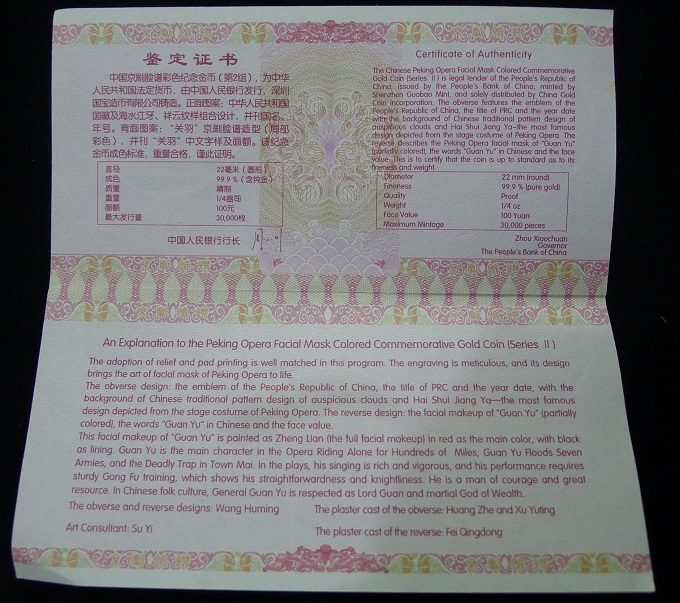 鉴定证书
中国京剧脸谱彩色纪念金币（第2组），为中华
人民共和国法定货币，由中国人民银行发行，深圳
国宝造币有限公司铸造。正面图案：中华人民共和国
国徽及海水江牙、祥云纹样组合设计，并刊国名、
年号。背面图案：“关羽”京剧脸谱造型（局部
彩色），并刊“关羽”中文字样及面额。该纪念
金币成色标准，重量合格，谨此证明。
直径 22毫米（圆形）
成色 99.9％（含纯金）
质量 精制
重量 1/4盎司
面额 100元
最大发行量 30,000枚
中国人民银行行长
Certificate of Authenticity
The Chinese Peking Opera Facial Mask Colored Commemorative
Gold Coin (Series II) is legal tender of the People's Republic of
China, issued by the People's Bank of China, minted by
Shenzhen Guobao Mint, and solely distributed by China Gold
Coin Incorporation. The obverse features the emblem of the
People's Republic of China, the title of PRC and the year date
with the background of Chinese traditional pattern design of
auspicious clouds and Hai Shui Jiang Ya—the most famous
design depicted from the stage costume of Peking Opera. The
reverse describes the Peking Opera facial mask of "Guan Yu"
(partially colored), the words "Guan Yu" in Chinese and the face
value. This is to certify that the coin is up to standard as to its
fineness and weight.
Diameter 22 mm (round)
Fineness 99.9 % (pure gold)
Quality Proof
Weight 1/4 oz
Face Value 100 Yuan
Maximum Mintage 30,000 pieces
Zhou Xiaochuan
Governor
The People's Bank of China
An Explanation to the Peking Opera Facial Mask Colored Commemorative Gold Coin (Series II)
The adoption of relief and pad printing is well matched in this program. The engraving is meticulous, and its design
brings the art of facial mask of Peking Opera to life.
The obverse design: the emblem of the People's Republic of China, the title of PRC and the year date, with the
background of Chinese traditional pattern design of auspicious clouds and Hai Shui Jiang Ya—the most famous
design depicted from the stage costume of Peking Opera. The reverse design: the facial makeup of "Guan Yu" (partially
colored), the words "Guan Yu" in Chinese and the face value.
This facial makeup of "Guan Yu" is painted as Zheng Lian (the full facial makeup) in red as the main color, with black
as lining. Guan Yu is the main character in the Opera Riding Alone for Hundreds of Miles, Guan Yu Floods Seven
Armies, and the Deadly Trap in Town Mai. In the plays, his singing is rich and vigorous, and his performance requires
sturdy Gong Fu training, which shows his straightforwardness and knightliness. He is a man of courage and great
resource. In Chinese folk culture, General Guan Yu is respected as Lord Guan and martial God of Wealth.
The obverse and reverse designs: Wang Huming The plaster cast of the obverse: Huang Zhe and Xu Yuting
Art Consultant: Su Yi The plaster cast of the reverse: Fei Qingdong